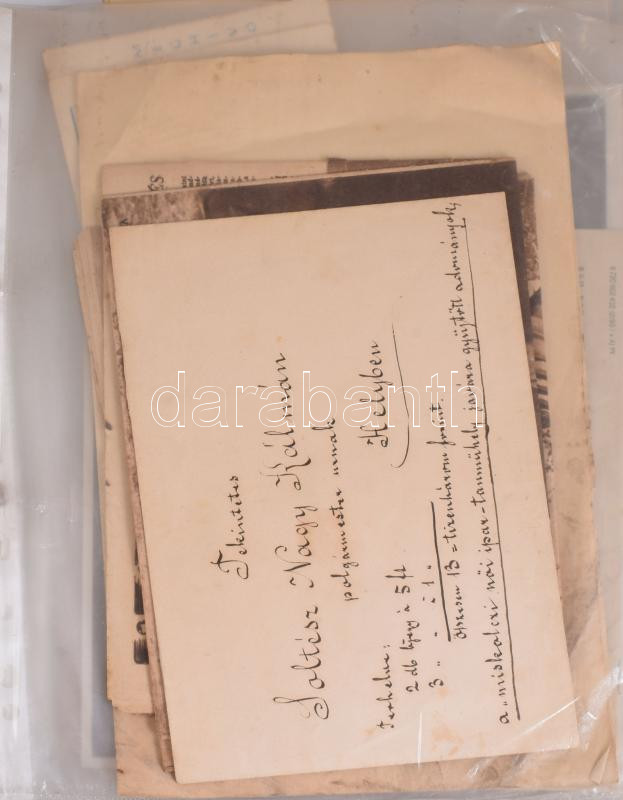 Tekintetes
Soltész Nagy Kálmán
polgármester urnak
Helyben
Terhelve:
2 db bjegy à 5 ft
3 " " à 1 "
összesen 13 = tizenhárom frtint.
a "miskolczi női ipar-tanműhely javára gyüjtött adományok,
darabanth